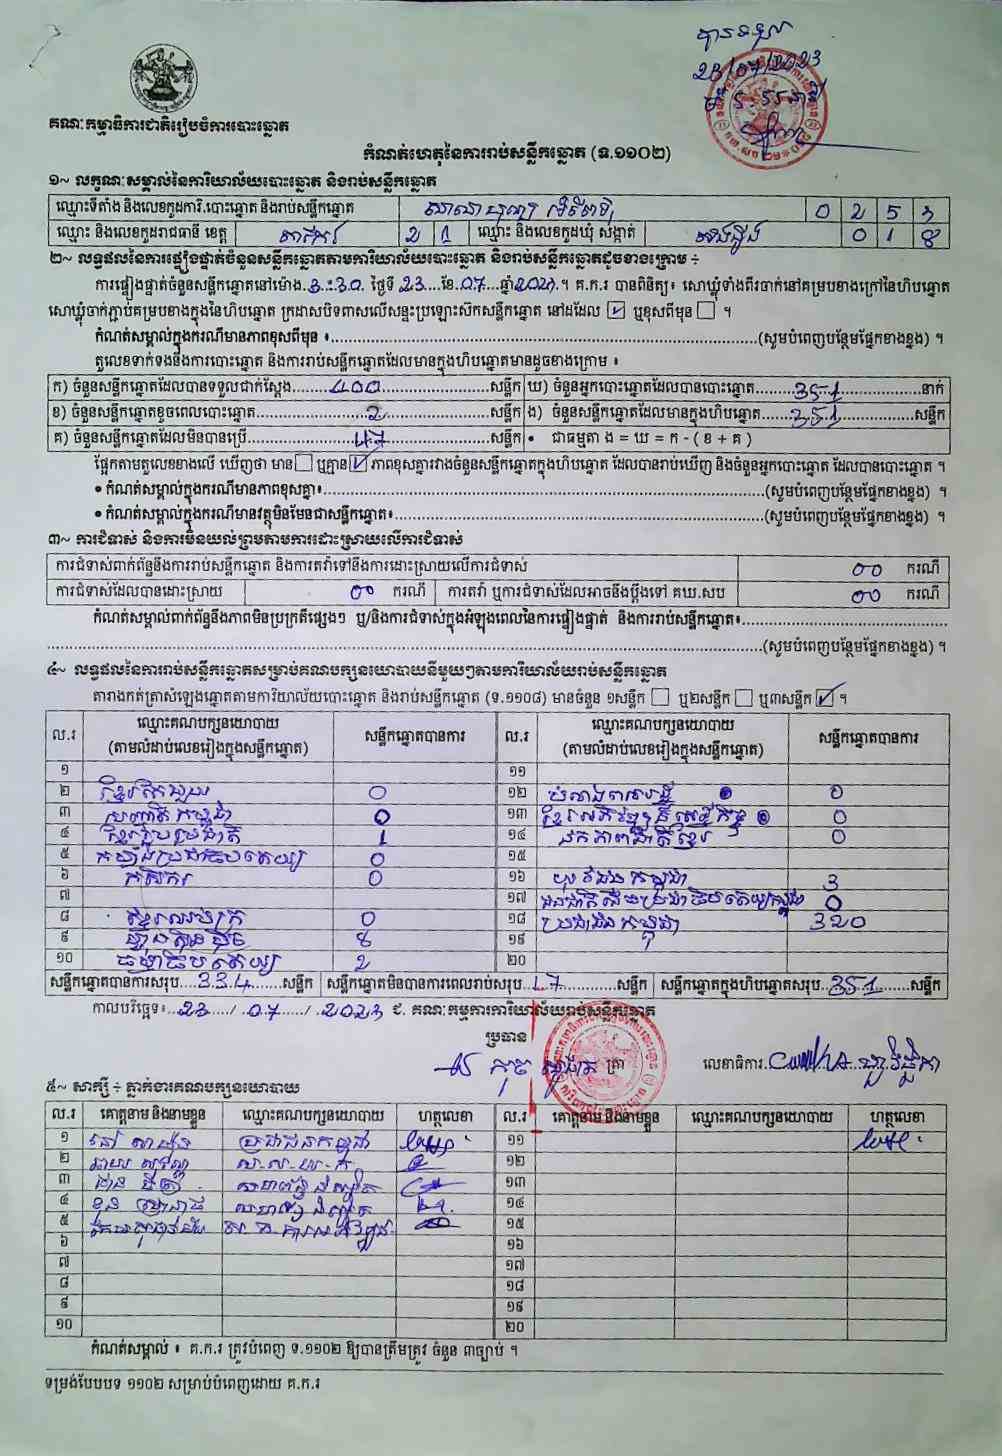 បានទទួល
23/07/2023
គណៈកម្មាធិការជាតិរៀបចំការបោះឆ្នោត
កំណត់ហេតុនៃការរាប់សន្លឹកឆ្នោត (ទ.១១០២)
១~ លក្ខណៈសម្គាល់នៃការិយាល័យបោះឆ្នោត និងរាប់សន្លឹកឆ្នោត
ឈ្មោះទីតាំង និងលេខកូដការិ.បោះឆ្នោត និងរាប់សន្លឹកឆ្នោត 0 2 5 3
ឈ្មោះ និងលេខកូដរាជធានី ខេត្ត តាកែវ 2 1 ឈ្មោះ និងលេខកូដឃុំ សង្កាត់ 0 1 8
២~ លទ្ធផលនៃការផ្ទៀងផ្ទាត់ចំនួនសន្លឹកឆ្នោតតាមការិយាល័យបោះឆ្នោត និងរាប់សន្លឹកឆ្នោតដូចខាងក្រោម ÷
ការផ្ទៀងផ្ទាត់ចំនួនសន្លឹកឆ្នោតនៅម៉ោង.3:30. ថ្ងៃទី 23....ខែ.07....ឆ្នាំ2023.។ គ.ក.រ បានពិនិត្យ៖ សោឃ្លុំទាំងពីរចាក់នៅគម្របខាងក្រៅនៃហិបឆ្នោត
សោឃ្លុំចាក់ភ្ជាប់គម្របខាងក្នុងនៃហិបឆ្នោត ក្រដាសបិទពាសលើសន្ទះប្រឡោះស៊កសន្លឹកឆ្នោត នៅដដែល ☑ ឬខុសពីមុន ☐ ។
កំណត់សម្គាល់ក្នុងករណីមានភាពខុសពីមុន ៖ (សូមបំពេញបន្ថែមផ្នែកខាងខ្នង) ។
តួលេខទាក់ទងនឹងការបោះឆ្នោត និងការរាប់សន្លឹកឆ្នោតដែលមានក្នុងហិបឆ្នោតមានដូចខាងក្រោម ៖
ក) ចំនួនសន្លឹកឆ្នោតដែលបានទទួលជាក់ស្តែង 400 សន្លឹក ឃ) ចំនួនអ្នកបោះឆ្នោតដែលបានបោះឆ្នោត 351 នាក់
ខ) ចំនួនសន្លឹកឆ្នោតខូចពេលបោះឆ្នោត 2 សន្លឹក ង) ចំនួនសន្លឹកឆ្នោតដែលមានក្នុងហិបឆ្នោត 351 សន្លឹក
គ) ចំនួនសន្លឹកឆ្នោតដែលមិនបានប្រើ 47 សន្លឹក • ជាធម្មតា ង = ឃ = ក - ( ខ + គ )
ផ្អែកតាមតួលេខខាងលើ ឃើញថា មាន ☐ ឬគ្មាន ☑ ភាពខុសគ្នារវាងចំនួនសន្លឹកឆ្នោតក្នុងហិបឆ្នោត ដែលបានរាប់ឃើញ និងចំនួនអ្នកបោះឆ្នោត ដែលបានបោះឆ្នោត ។
• កំណត់សម្គាល់ក្នុងករណីមានភាពខុសគ្នា៖ (សូមបំពេញបន្ថែមផ្នែកខាងខ្នង) ។
• កំណត់សម្គាល់ក្នុងករណីមានវត្ថុមិនមែនជាសន្លឹកឆ្នោត៖ (សូមបំពេញបន្ថែមផ្នែកខាងខ្នង) ។
៣~ ការជំទាស់ និងការមិនយល់ព្រមតាមការដោះស្រាយលើការជំទាស់
ការជំទាស់ពាក់ព័ន្ធនឹងការរាប់សន្លឹកឆ្នោត និងការតវ៉ាទៅនឹងការដោះស្រាយលើការជំទាស់ 00 ករណី
ការជំទាស់ដែលបានដោះស្រាយ 00 ករណី ការតវ៉ា ឬការជំទាស់ដែលអាចនឹងប្តឹងទៅ គឃ.សប 00 ករណី
កំណត់សម្គាល់ពាក់ព័ន្ធនឹងភាពមិនប្រក្រតីផ្សេងៗ ឬ/និងការជំទាស់ក្នុងអំឡុងពេលនៃការផ្ទៀងផ្ទាត់ និងការរាប់សន្លឹកឆ្នោត៖
(សូមបំពេញបន្ថែមផ្នែកខាងខ្នង) ។
៤~ លទ្ធផលនៃការរាប់សន្លឹកឆ្នោតសម្រាប់គណបក្សនយោបាយនីមួយៗតាមការិយាល័យរាប់សន្លឹកឆ្នោត
តារាងកត់ត្រាសំឡេងឆ្នោតតាមការិយាល័យបោះឆ្នោត និងរាប់សន្លឹកឆ្នោត (ទ.១១០៨) មានចំនួន ១សន្លឹក ☐ ឬ២សន្លឹក ☐ ឬ៣សន្លឹក ☑ ។
ល.រ ឈ្មោះគណបក្សនយោបាយ (តាមលំដាប់លេខរៀងក្នុងសន្លឹកឆ្នោត) សន្លឹកឆ្នោតបានការ ល.រ ឈ្មោះគណបក្សនយោបាយ (តាមលំដាប់លេខរៀងក្នុងសន្លឹកឆ្នោត) សន្លឹកឆ្នោតបានការ
១ ១១
២ ខ្មែរតែមួយ 0 ១២ 0
៣ កម្ពុជា 0 ១៣ 0
៤ ខ្មែររួបរួមជាតិ 1 ១៤ ឯកភាពជាតិខ្មែរ 0
៥ កម្លាំងប្រជាធិបតេយ្យ 0 ១៥
៦ កសិករ 0 ១៦ យុវជនកម្ពុជា 3
៧ ១៧ 0
៨ 0 ១៨ ប្រជាជនកម្ពុជា 320
៩ ហ៊្វុនស៊ិនប៉ិច 8 ១៩
១០ ធម្មាធិបតេយ្យ 2 ២០
សន្លឹកឆ្នោតបានការសរុប 334 សន្លឹក សន្លឹកឆ្នោតមិនបានការពេលរាប់សរុប 17 សន្លឹក សន្លឹកឆ្នោតក្នុងហិបឆ្នោតសរុប 351 សន្លឹក
កាលបរិច្ឆេទ៖ 23 / 07 / 2023 ជ. គណៈកម្មការការិយាល័យរាប់សន្លឹកឆ្នោត
ប្រធាន
ត្រា លេខាធិការ
៥~ សាក្សី ÷ ភ្នាក់ងារគណបក្សនយោបាយ
ល.រ គោត្តនាម និងនាមខ្លួន ឈ្មោះគណបក្សនយោបាយ ហត្ថលេខា ល.រ គោត្តនាម និងនាមខ្លួន ឈ្មោះគណបក្សនយោបាយ ហត្ថលេខា
១ ប្រជាជនកម្ពុជា ១១
២ ស.ស.យ.ក ១២
៣ ១៣
៤ ១៤
៥ ១៥
៦ ១៦
៧ ១៧
៨ ១៨
៩ ១៩
១០ ២០
កំណត់សម្គាល់ ៖ គ.ក.រ ត្រូវបំពេញ ទ.១១០២ ឱ្យបានត្រឹមត្រូវ ចំនួន ៣ច្បាប់ ។
ទម្រង់បែបបទ ១១០២ សម្រាប់បំពេញដោយ គ.ក.រ